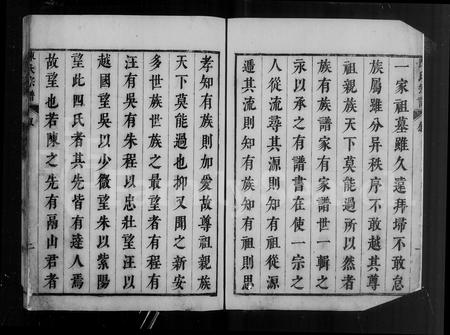 一家祖墓雖久遠拜掃不敢怠
族屬雖分昇秩序不敢越其尊
祖親族天下莫能過所以然者
族有族譜家有家譜世一輯之
永以承之有譜書在使一宗之
人從流尋其源則知有祖從源
遡其流則知有族知有祖則思
孝知有族則加愛故尊祖親族
天下莫能過也抑又聞之新安
多世族世族之最望者有程有
汪有吳有朱程以忠壯望汪以
越國望吳以少微望朱以紫陽
望此四氏者其先皆有達人焉
故望也若陳之先有鬲山君者
氏宗譜
二